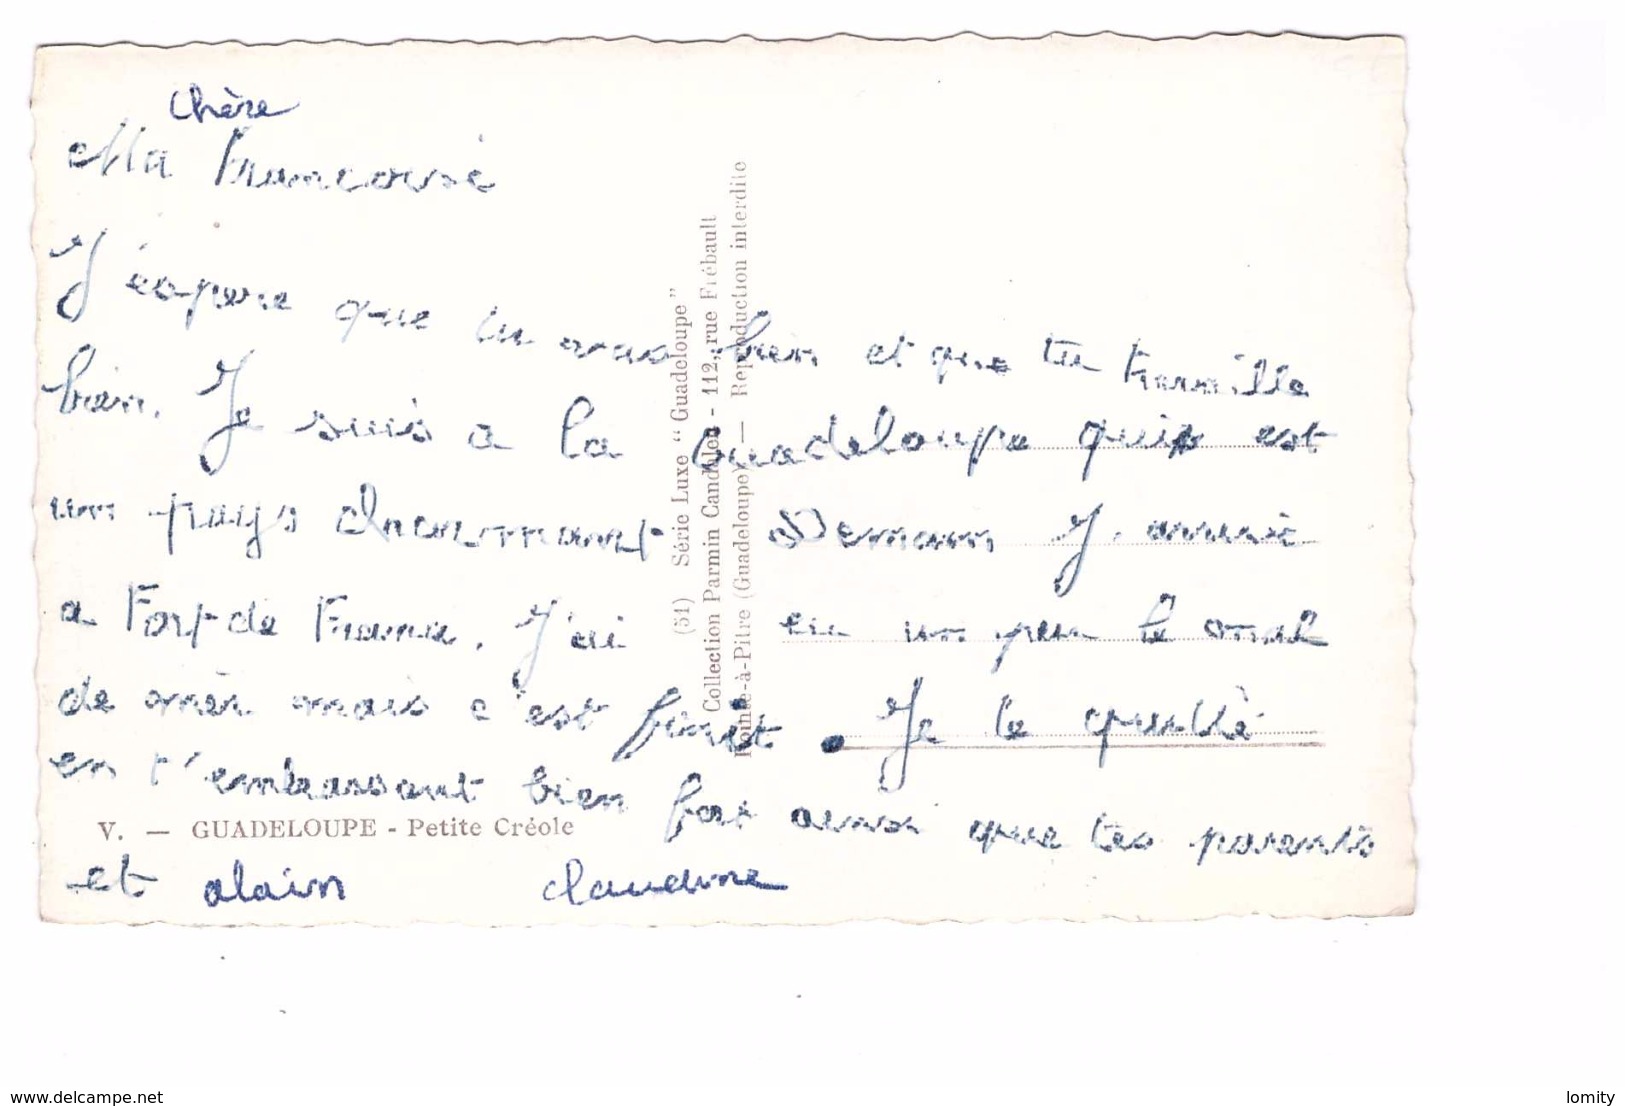 chère
Ma Francoise
J'éspere que tu vas bien et que tu travaille
bien. Je suis a la Guadeloupe qui est
un pays charmant Demain J'arrive
a Fort de France. J'ai eu un peu le mal
de mèr mais c'est finit. Je te quitte
en t'embrassant bien fort ainsi que tes parents
et alain claudine
V. — GUADELOUPE - Petite Créole
(51) Série Luxe "Guadeloupe"
Collection Parmin Candalen - 112, rue Frébault
Pointe-à-Pitre (Guadeloupe) — Reproduction interdite
www.delcampe.net
lomity